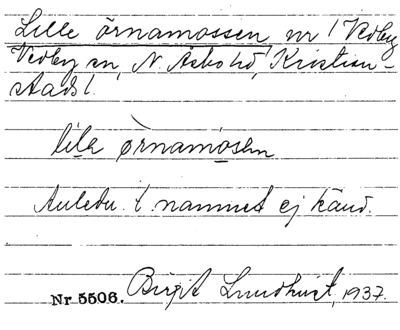 Lille örnamossen, nr 1 Vedby
Vedby sn, N. Åsbo hd, Kristian-
stads l.
lila ørnamosen
Anledn. t. namnet ej känd.
Nr 5506. Birgit Lundkvist, 1937.